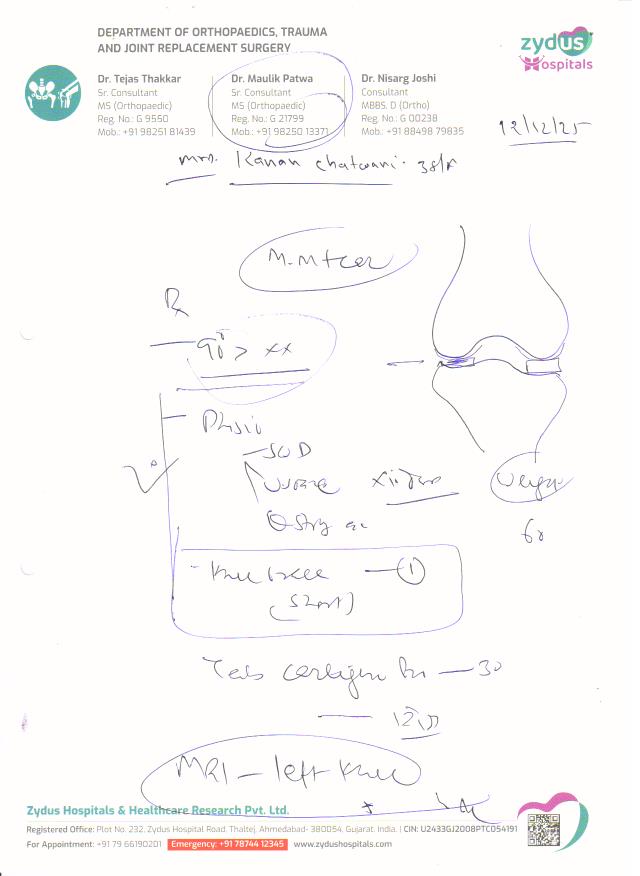 DEPARTMENT OF ORTHOPAEDICS, TRAUMA
AND JOINT REPLACEMENT SURGERY
zydus
Hospitals
Dr. Tejas Thakkar
Sr. Consultant
MS (Orthopaedic)
Reg. No.: G 9550
Mob.: +91 98251 81439
Dr. Maulik Patwa
Sr. Consultant
MS (Orthopaedic)
Reg. No.: G 21799
Mob.: +91 98250 13371
Dr. Nisarg Joshi
Consultant
MBBS. D (Ortho)
Reg. No.: G 00238
Mob.: +91 88498 79835
12/12/25
Mrs. Kanan Chatwani. 38/F
Rx
90° > xx
Physio
SWD
Knee brace — 1
(Short)
Tab — 30
MRI - left knee
Zydus Hospitals & Healthcare Research Pvt. Ltd.
Registered Office: Plot No. 232, Zydus Hospital Road, Thaltej, Ahmedabad- 380054, Gujarat. India. | CIN: U2433GJ2008PTC054191
For Appointment: +91 79 66190201 Emergency: +91 78744 12345 www.zydushospitals.com